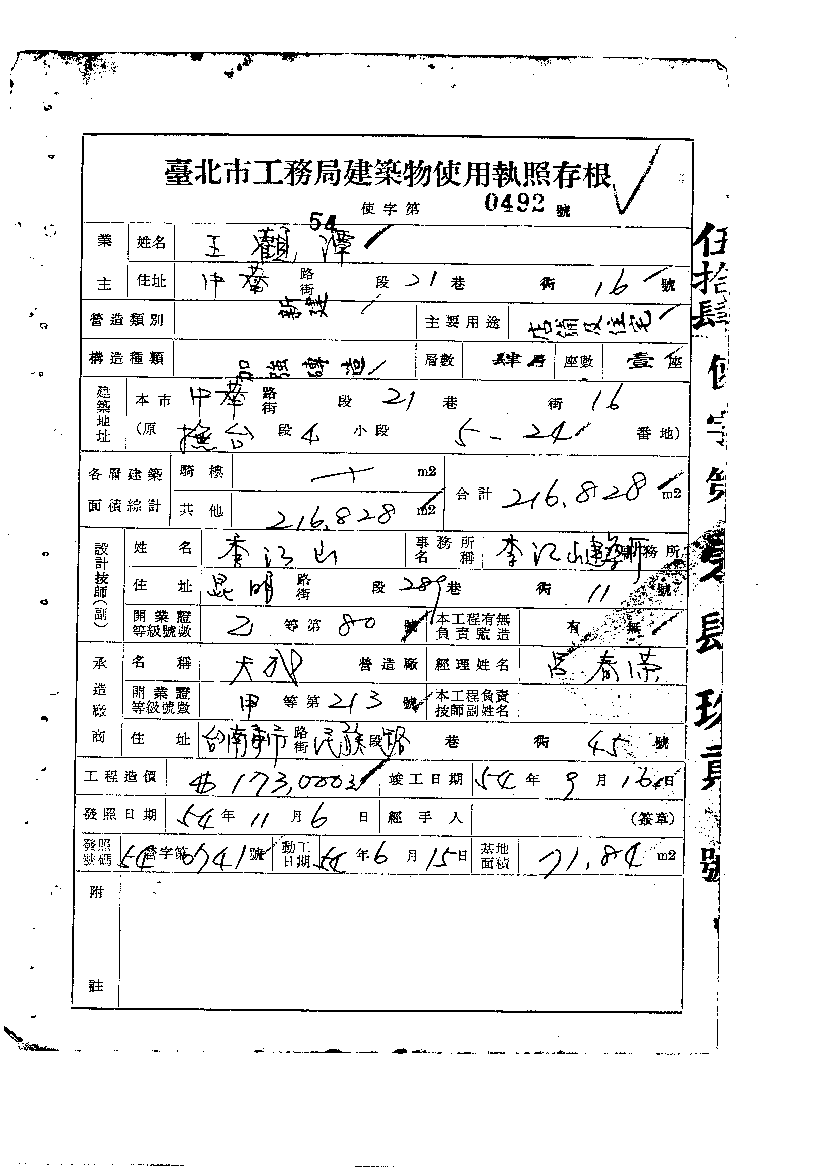 臺北市工務局建築物使用執照存根
54 使字第 0492 號
業主 姓名 王觀潭
住址 中華路街 段 21 巷 街 16 號
營造類別 新建 主要用途 店舖及住宅
構造種類 加強磚造 層數 肆層 座數 壹座
建築地址 本市 中華路街 段 21 巷 街 16
(原 撫台段 4 小段 5-24 番地)
各層建築面積綜計 騎樓 m2 合計 216.828 m2
其他 216.828 m2
設計技師(副) 姓名 李江山 事務所名稱 李江山建築師事務所
住址 昆明路街 段 289 巷 街 11 號
開業證等級號數 乙等第 80 號 本工程有無負責監造 有 無
承造廠商 名稱 營造廠 經理姓名 呂春榮
開業證等級號數 甲等第 213 號 本工程負責技師副姓名
住址 台南市 路街 民族 段 路 巷 街 45 號
工程造價 $173,000 竣工日期 54 年 9 月 16 日
發照日期 54 年 11 月 6 日 經手人 (簽章)
發照號碼 54 營字第 0741 號 動工日期 54 年 6 月 15 日 基地面積 71.84 m2
附註
伍拾肆使字第零肆玖貳號